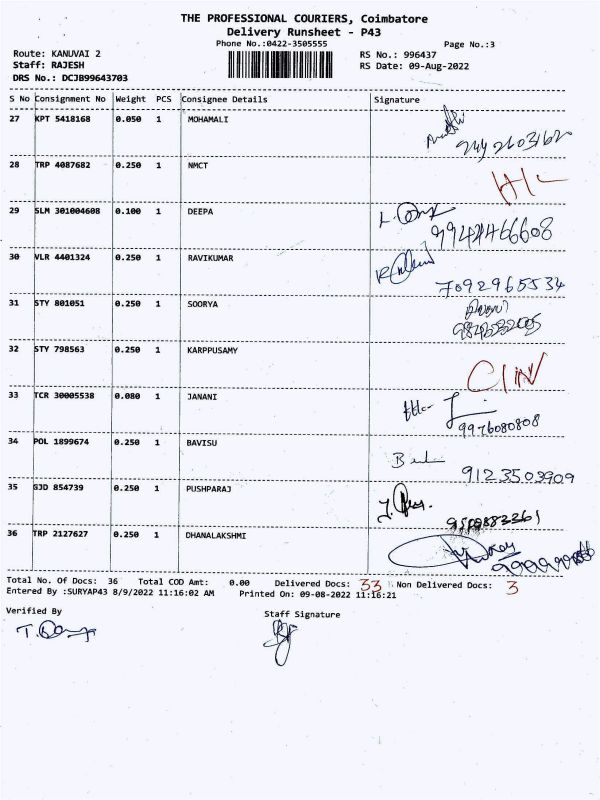 THE PROFESSIONAL COURIERS, Coimbatore
Delivery Runsheet - P43
Phone No.:0422-3505555 Page No.:3
Route: KANUVAI 2 RS No.: 996437
Staff: RAJESH RS Date: 09-Aug-2022
DRS No.: DCJB99643703
S No Consignment No Weight PCS Consignee Details Signature
27 KPT 5418168 0.050 1 MOHAMALI
28 TRP 4087682 0.250 1 NMCT
H/C
29 SLM 301004608 0.100 1 DEEPA
30 VLR 4401324 0.250 1 RAVIKUMAR
7092965534
31 STY 801051 0.250 1 SOORYA
32 STY 798563 0.250 1 KARPPUSAMY
C/N
33 TCR 30005538 0.080 1 JANANI
9976080808
34 POL 1899674 0.250 1 BAVISU
9123503909
35 GJD 854739 0.250 1 PUSHPARAJ
9500883361
36 TRP 2127627 0.250 1 DHANALAKSHMI
Total No. Of Docs: 36 Total COD Amt: 0.00 Delivered Docs: 33 Non Delivered Docs: 3
Entered By :SURYAP43 8/9/2022 11:16:02 AM Printed On: 09-08-2022 11:16:21
Verified By Staff Signature